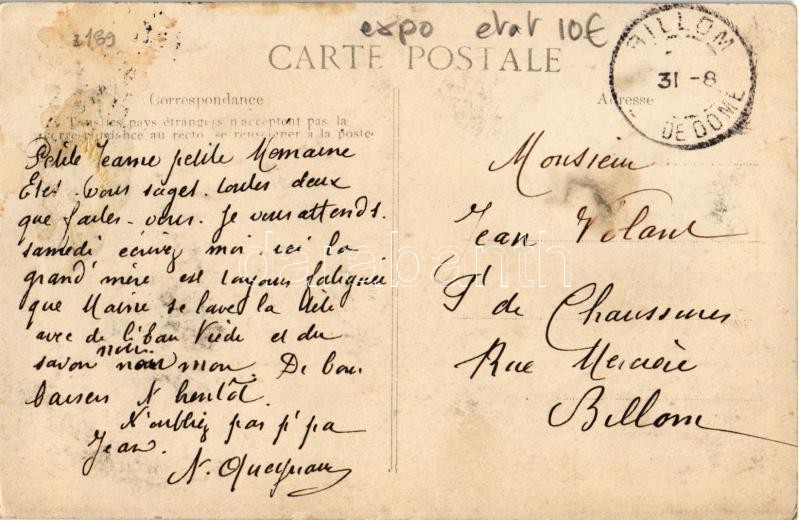 2189
expo etat 10€
CARTE POSTALE
BILLOM
31 -8
DE DOME
Correspondance
Adresse
Tous les pays étrangers n'acceptent pas la
correspondance au recto, se renseigner à la poste
Petite Jeanne petite
Etes-vous sages toutes deux
que faites-vous. Je vous attends
samedi écrivez moi ici la
grand'mère est toujours fatiguée
que se lave la tête
avec de l'eau et du
savon noir mon. De bons
baisers bientôt
N'oubliez pas
Jean.
N.
Monsieur
Jean Volant
de Chaussures
Rue Mercière
Billom
darabanth